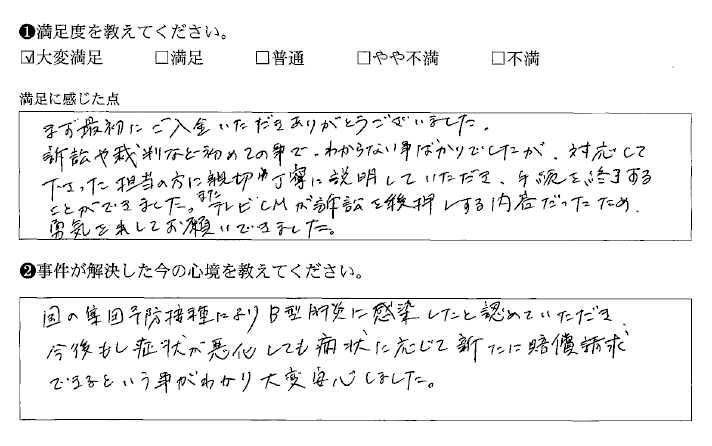 ❶満足度を教えてください。
☑大変満足 □満足 □普通 □やや不満 □不満
満足に感じた点
まず最初にご入金いただきありがとうございました。
訴訟や裁判など初めての事で、わからない事ばかりでしたが、対応して
下さった担当の方に親切や丁寧に説明していただき、手続を終了する
ことができました。またテレビCMが訴訟を後押しする内容だったため、
勇気を出してお願いできました。
❷事件が解決した今の心境を教えてください。
国の集団予防接種によりB型肝炎に感染したと認めていただき、
今後もし症状が悪化しても病状に応じて新たに賠償請求
できるという事がわかり大変安心しました。